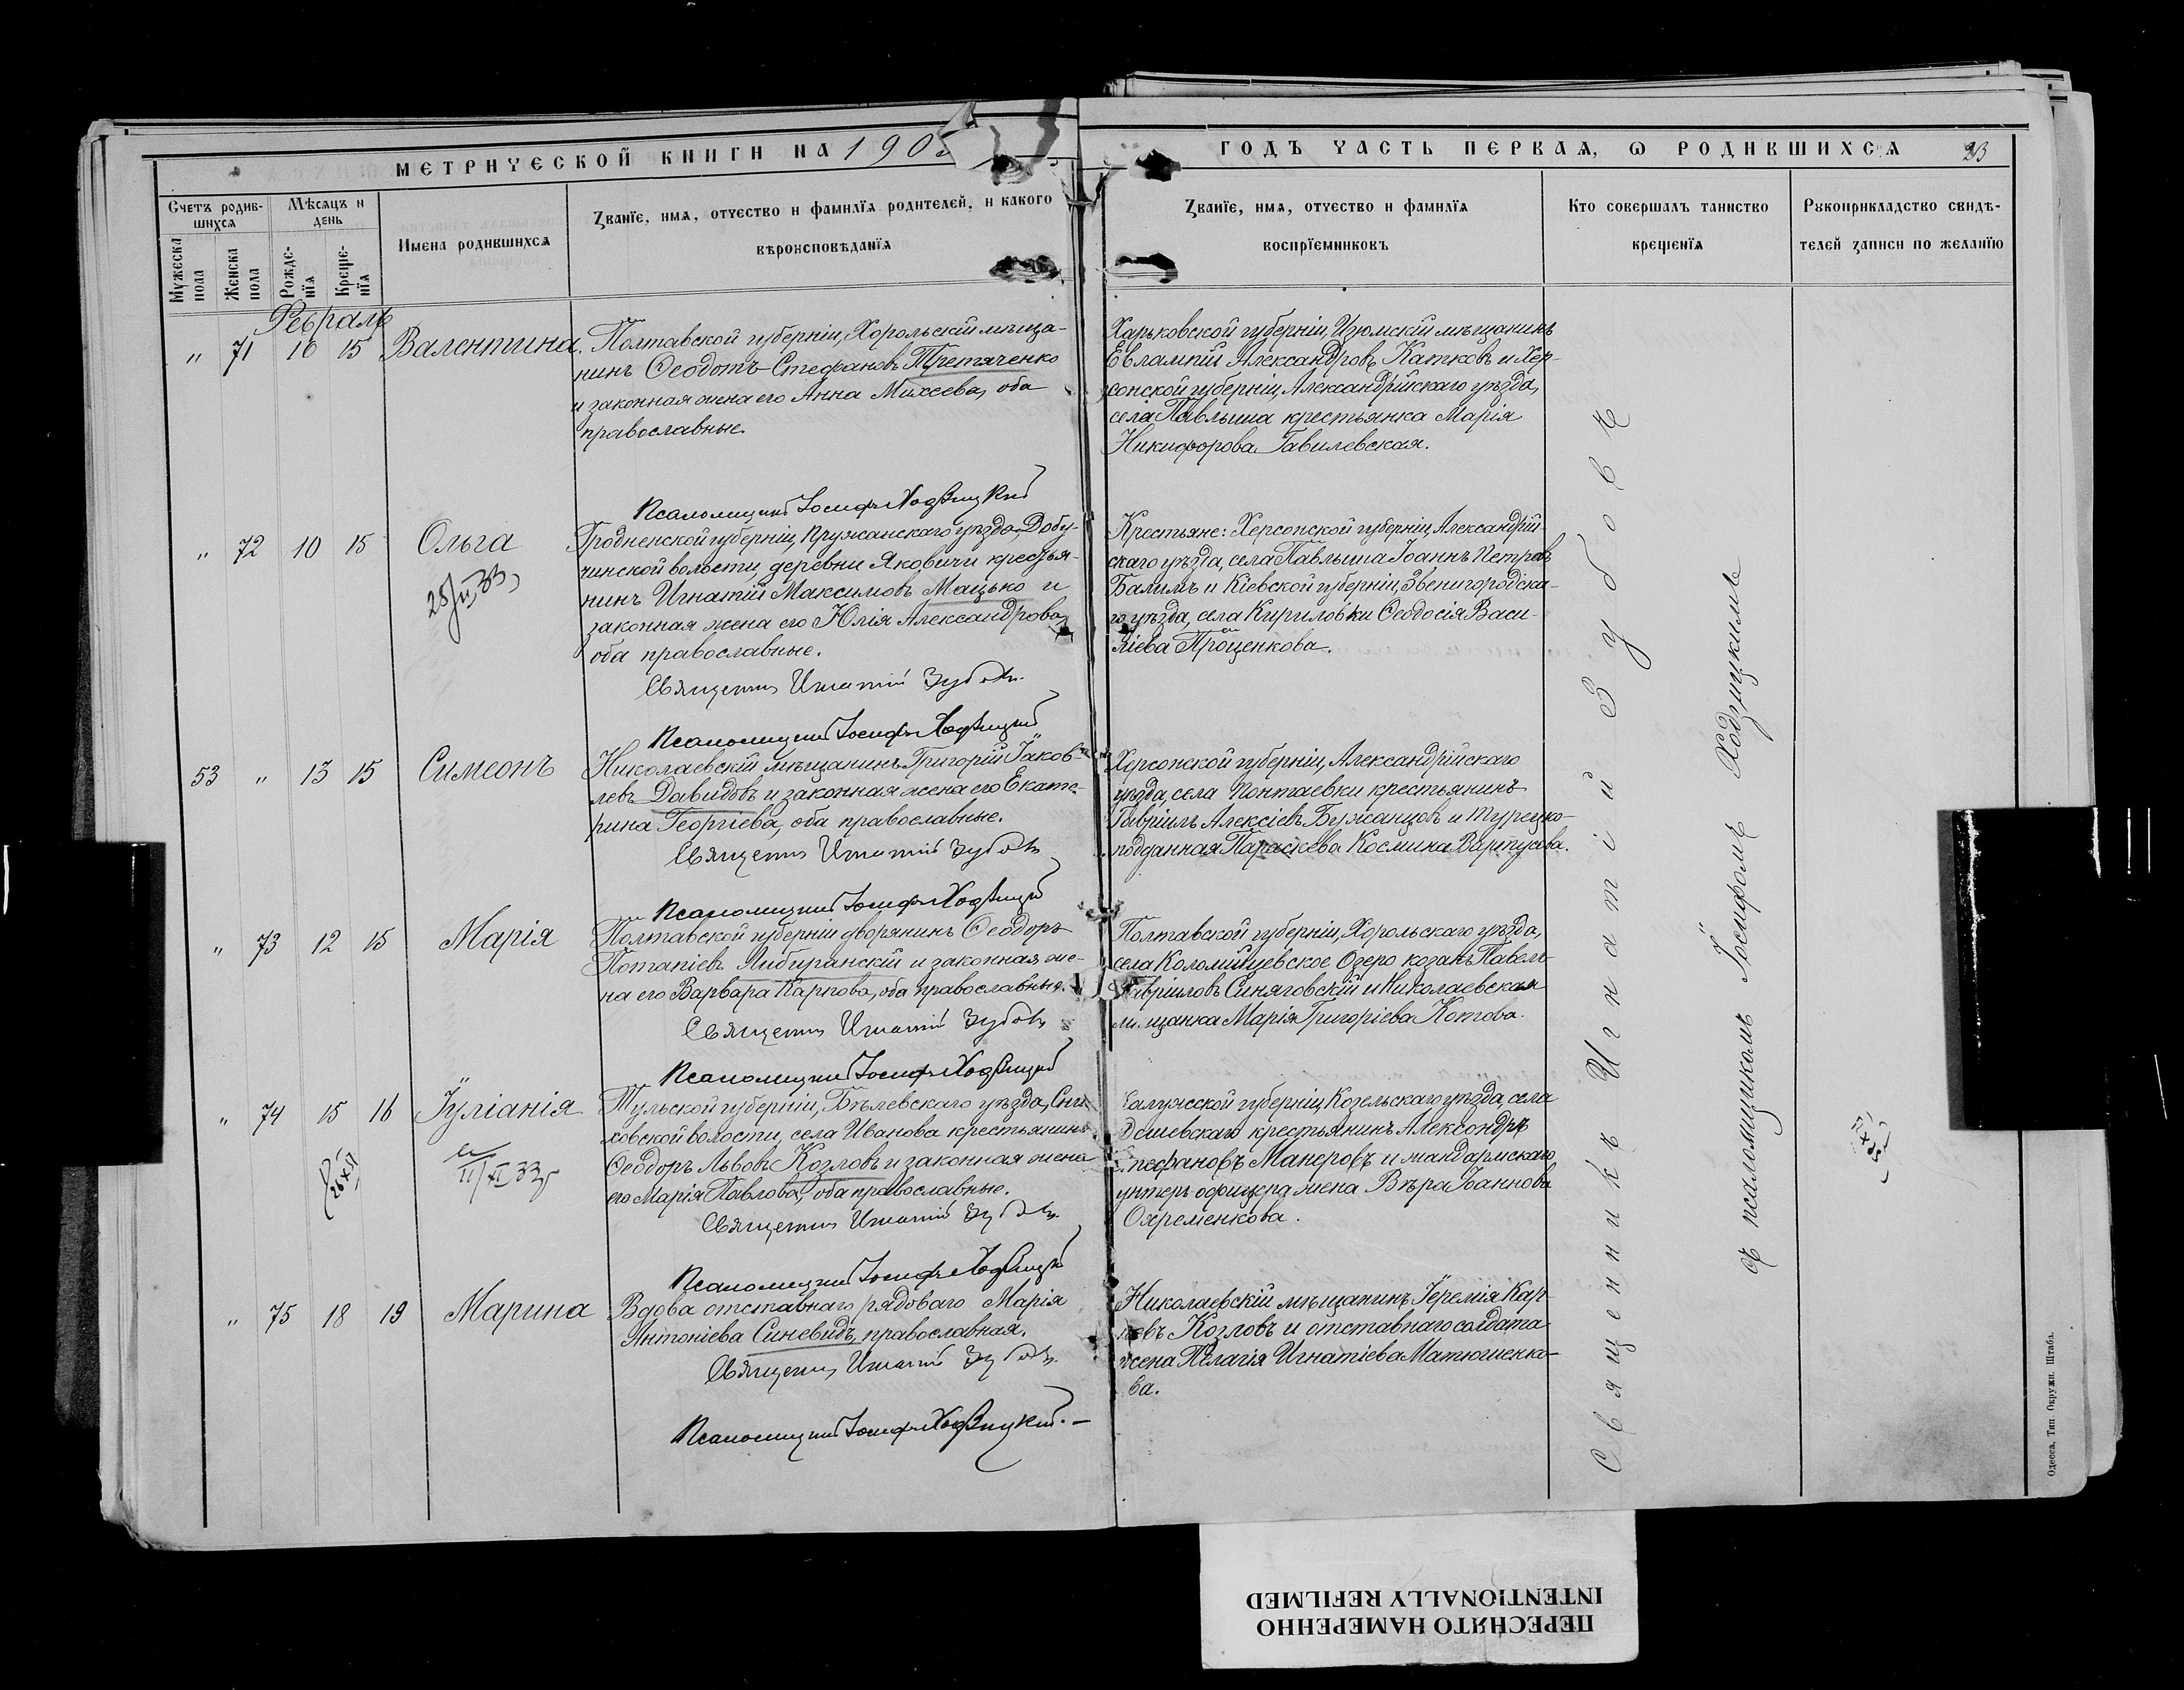 МЕТРИЧЕСКОЙ КНИГИ НА 190
Счетъ родив-
шихся
Мѣсяцъ и
день
Мужеска
пола
Женска
пола
Рожде-
нія
Креще-
нія
Имена родившихся
Званіе, имя, отчество и фамилія родителей, и какого
вѣроисповѣданія
Февраль
" 71 10 15 Валентина.
Полтавской губерніи, Хорольскій мѣща-
нинъ Ѳеодотъ Стефановъ Третяченко
и законная жена его Анна Михеева, оба
православные.
Псаломщикъ Іосифъ Ходзицкій
" 72 10 15 Ольга
Гродненской губерніи, Пружанскаго уѣзда, Добу-
чинской волости, деревни Яковичи крестья-
нинъ Игнатій Максимовъ Мацько и
законная жена его Юлія Александрова,
оба православные.
Священникъ Игнатій Зубовъ.
Псаломщикъ Іосифъ Ходзицкій
53 " 13 15 Симеонъ
Николаевскій мѣщанинъ Григорій Іаков-
левъ Давидовъ и законная жена его Екате-
рина Георгіева, оба православные.
Священникъ Игнатій Зубовъ
Псаломщикъ Іосифъ Ходзицкій
" 73 12 15 Марія
Полтавской губерніи дворянинъ Ѳеодоръ
Потапіевъ и законная же-
на его Варвара Карпова, оба православные.
Священникъ Игнатій Зубовъ
Псаломщикъ Іосифъ Ходзицкій
" 74 15 16 Іуліанія
XI 33
26 XII
Тульской губерніи, Бѣлевскаго уѣзда,
ховской волости, села Иванова крестьянинъ
Ѳеодоръ Львовъ Козловъ и законная жена
его Марія Павлова, оба православные.
Священникъ Игнатій Зубовъ.
Псаломщикъ Іосифъ Ходзицкій
" 75 18 19 Марина
Вдова отставнаго рядоваго Марія
Антоніева Синевидъ, православная.
Священникъ Игнатій Зубовъ.
Псаломщикъ Іосифъ Ходзицкій. —
ГОДЪ ЧАСТЬ ПЕРВАЯ, Ѡ РОДИВШИХСЯ
23
Званіе, имя, отчество и фамилія
воспріемниковъ
Кто совершалъ таинство
крещенія
Рукоприкладство свидѣ-
телей записи по желанію
Харьковской губерніи, Изюмскій мѣщанинъ
Евлампій Александровъ Катковъ и Хер-
сонской губерніи, Александрійскаго уѣзда,
села Павлыша крестьянка Марія
Никифорова Гавилевская.
Крестьяне: Херсонской губерніи, Александрій-
скаго уѣзда, села Павлыша Іоаннъ Петровъ
Балимъ и Кіевской губерніи, Звенигородска-
го уѣзда, села Кириловки Ѳеодосія Васи-
ліева Проценкова.
Херсонской губерніи, Александрійскаго
уѣзда, села Понтаевки крестьянинъ
Гавріилъ Алексіевъ Бужанцовъ и турецко-
подданная Параскева Космина Вартусова.
Полтавской губерніи, Хорольскаго уѣзда,
села Коломійцевское Озеро козакъ Павелъ
Гавріиловъ Синяговскій и Николаевская
мѣщанка Марія Григоріева Котова.
Калужской губерніи Козельскаго уѣзда, села
Дешевскаго крестьянинъ Александръ
Стефановъ Манеровъ и жандармскаго
унтеръ-офицера жена Вѣра Іоаннова
Охременкова.
Николаевскій мѣщанинъ Іеремія Кар-
повъ Козловъ и отставнаго солдата
жена Пелагія Игнатіева Матюшенко-
ва.
Священникъ Игнатій Зубовъ
съ псаломщикомъ Іосифомъ Ходзицкимъ
Одесса, Тип. Окружн. Штаба.
ПЕРЕСНЯТО НАМЕРЕННО
INTENTIONALLY REFILMED